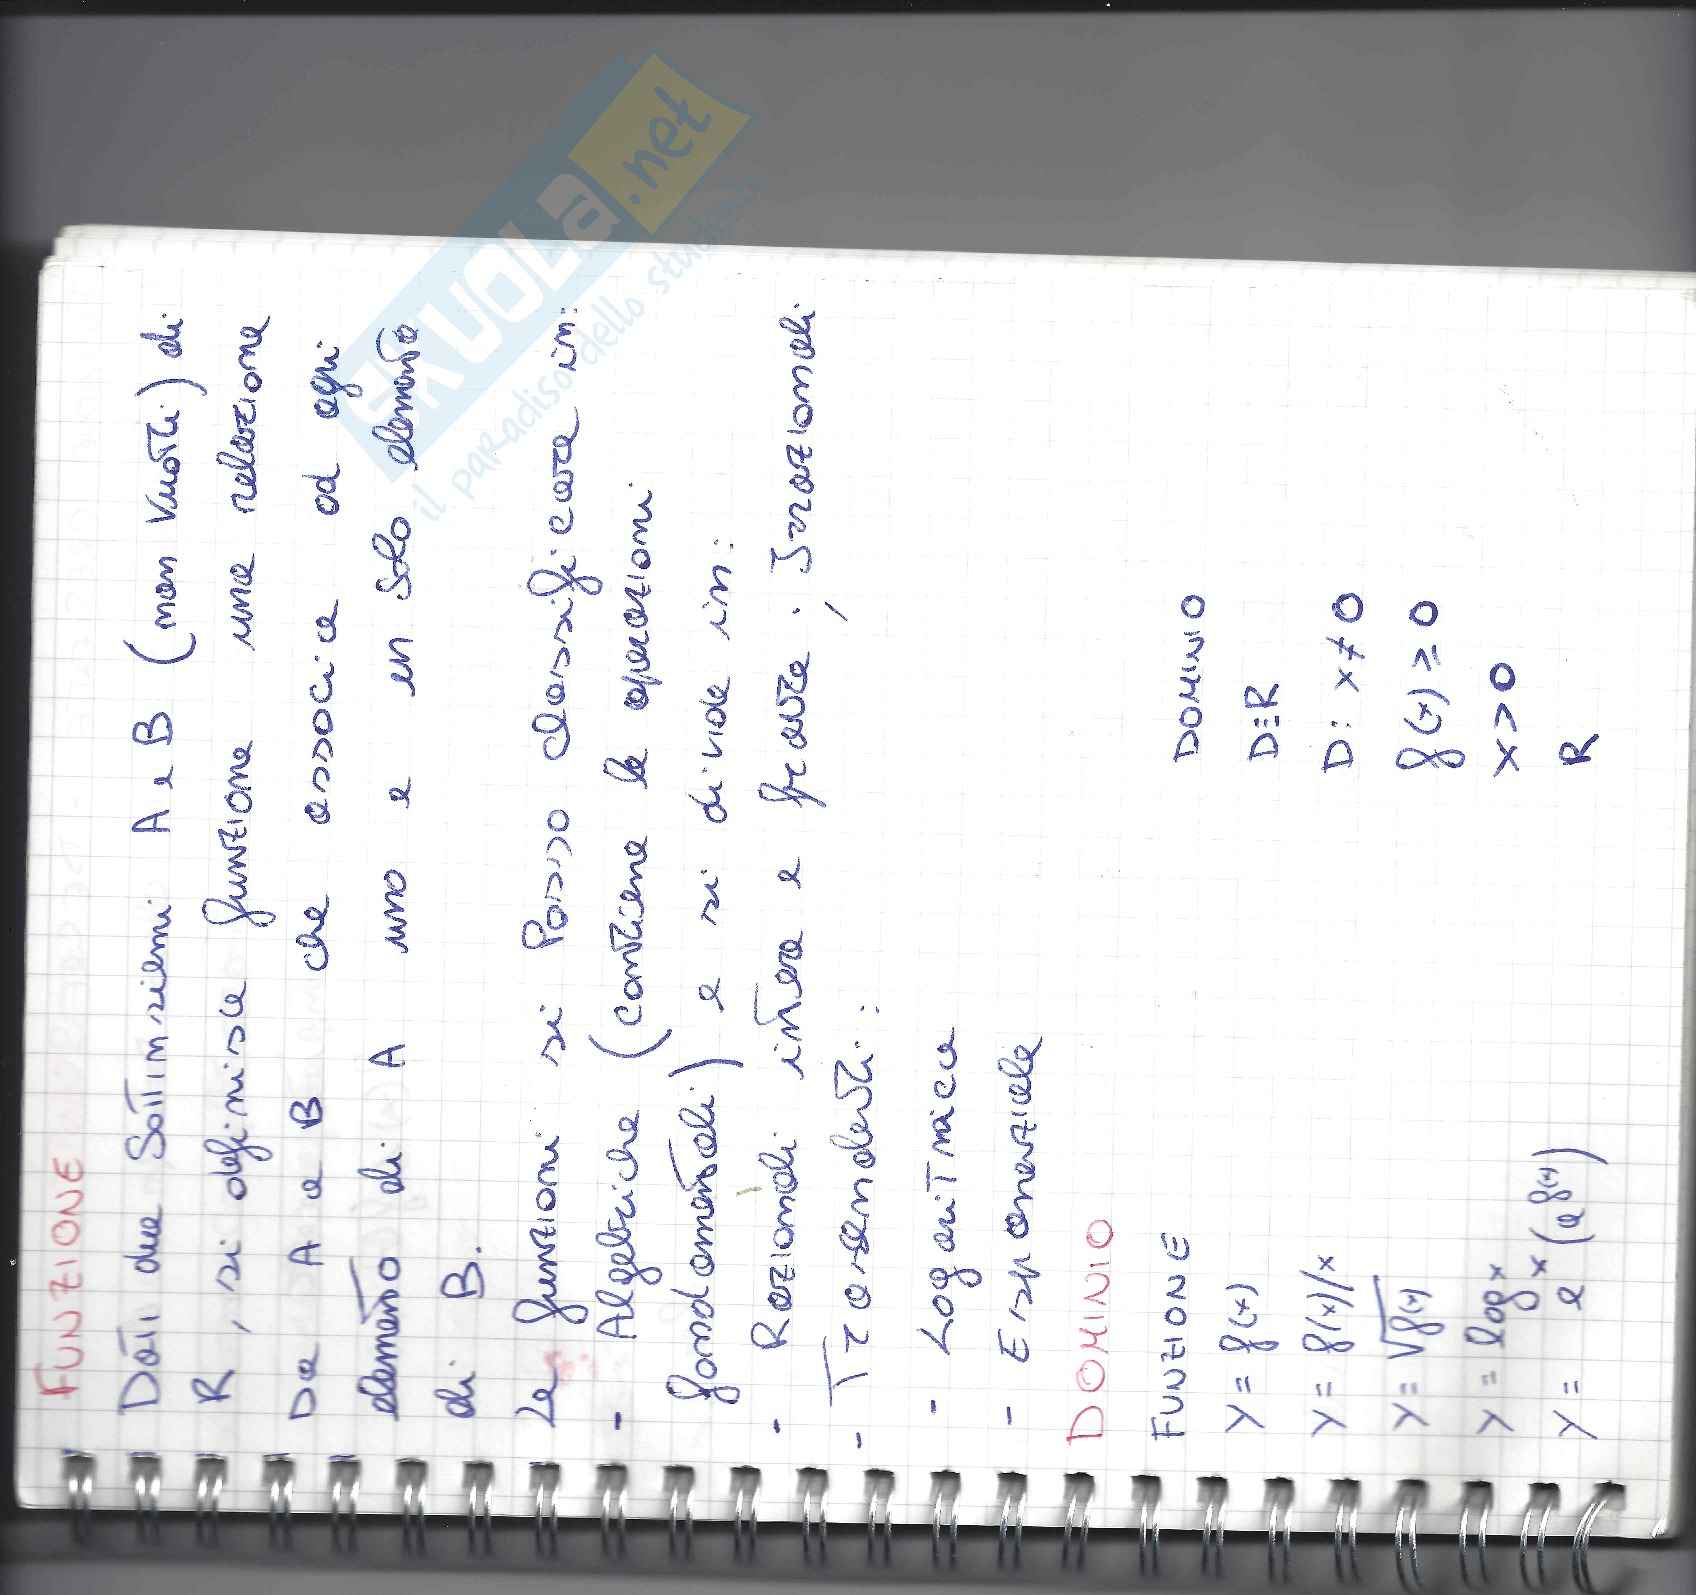 FUNZIONE
Dati due Sottinsiemi A e B (non vuoti) di
R, si definisce funzione una relazione
Da A a B che associa ad ogni
elemento di A uno e un solo elemento
di B.
Le funzioni si Posso classificare in:
- Algebriche (contiene le operazioni
fondamentali) e si divide in:
- Razionali intera e fratta; Irrazionali
- Trasendenti:
- Logaritmica
- Esponenziale
DOMINIO
FUNZIONE DOMINIO
y = f(x) D≡R
y = f(x)/x D: x≠0
y = √f(x) f(x) ≥ 0
y = log x x>0
y = e^x (e^f(x)) R
SKUOLA.net
il paradiso dello studente